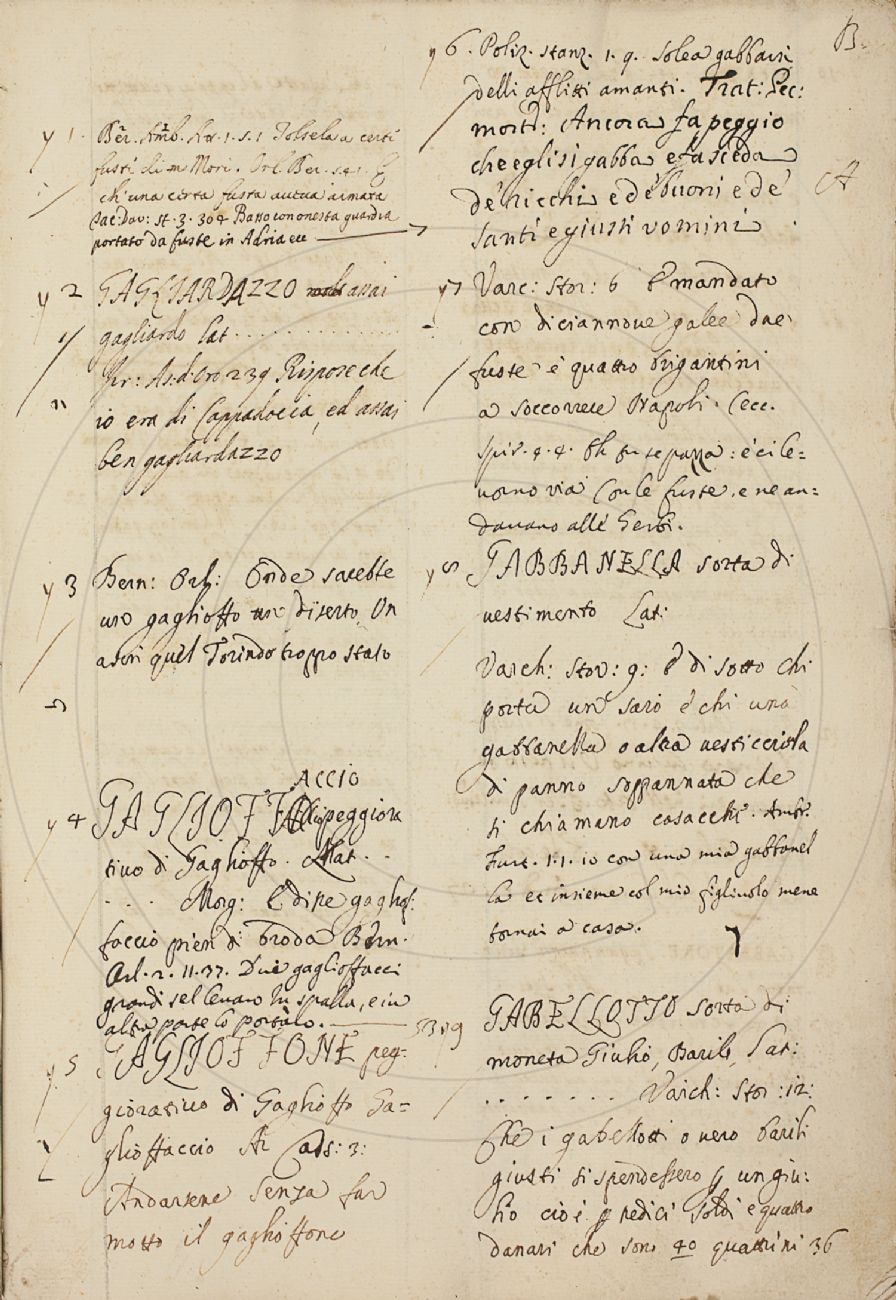 B.
y 1. Ber. Amb. At. 1. s. 1 Tolsela a certi
fusti di Mori. Orl. Ber.
ch'una certa fusta armata
Dav: st. 3. 304 Basso con onesta guardia
portato da fuste in Adria ecc
y 2 GAGLIARDAZZO assai
gagliardo Lat . . . . . . . . . .
Fir: As. d'Oro 239 Rispose che
io era di Cappadocia, ed assai
ben gagliardazzo
y 3 Bern: Orl: Onde sarebbe
uno gaglioffo un diserto, Un
asin quel Torindo troppo stato
ACCIO
y 4 GAGLIOFF peggiora
tivo di Gaglioffo. Lat. .
. . . Morg: E disse gagliof:
faccio pien di broda Bern.
Orl. 2. 11. 37. Due gaglioffacci
grandi sel levaro in spalla, e in
altra parte lo portàro.
y 5 GAGLIOFFONE peg-
giorativo di Gaglioffo Ga=
glioffaccio Ar. Cass: 3:
Andarsene senza far
motto il gaglioffone
y 6. Poliz. stanz. 1. 9. solea gabbarsi
delli afflitti amanti. Trat: Pec:
mort: Ancora fa peggio
che egli si gabba e fa sceda
de' ricchi e de' buoni e de'
santi e giusti uomini
A
y 7 Varc: Stor: 6 E mandato
con diciannoue galee due
fuste e quattro brigantini
a soccorrere Napoli. Cecc.
Spir. 4. 4. Eh fuse pazza: e ci le=
uorno via con le fuste, e ne an=
dauano alle Gerbi.
y 8 GABBANELLA sorta di
uestimento Lat:
Varch: Stor: 9: E di sotto chi
porta un saio e chi una
gabbanella o altra uesticciola
di panno soppannata che
si chiamano casacche. Ambr.
Furt. 1. 1. io con una mia gabbanel
la ec insieme col mio figliuolo mene
tornai a casa.
y 9 GABELLOTTO sorta di
moneta Giulio, Barile, Lat:
. . . . . . . Varch: Stor: 12:
Che i gabellotti o uero barili
giusti si spendessero p un giu:
lio cioè p tredici soldi e quattro
danari che sono 40 quattrini 36